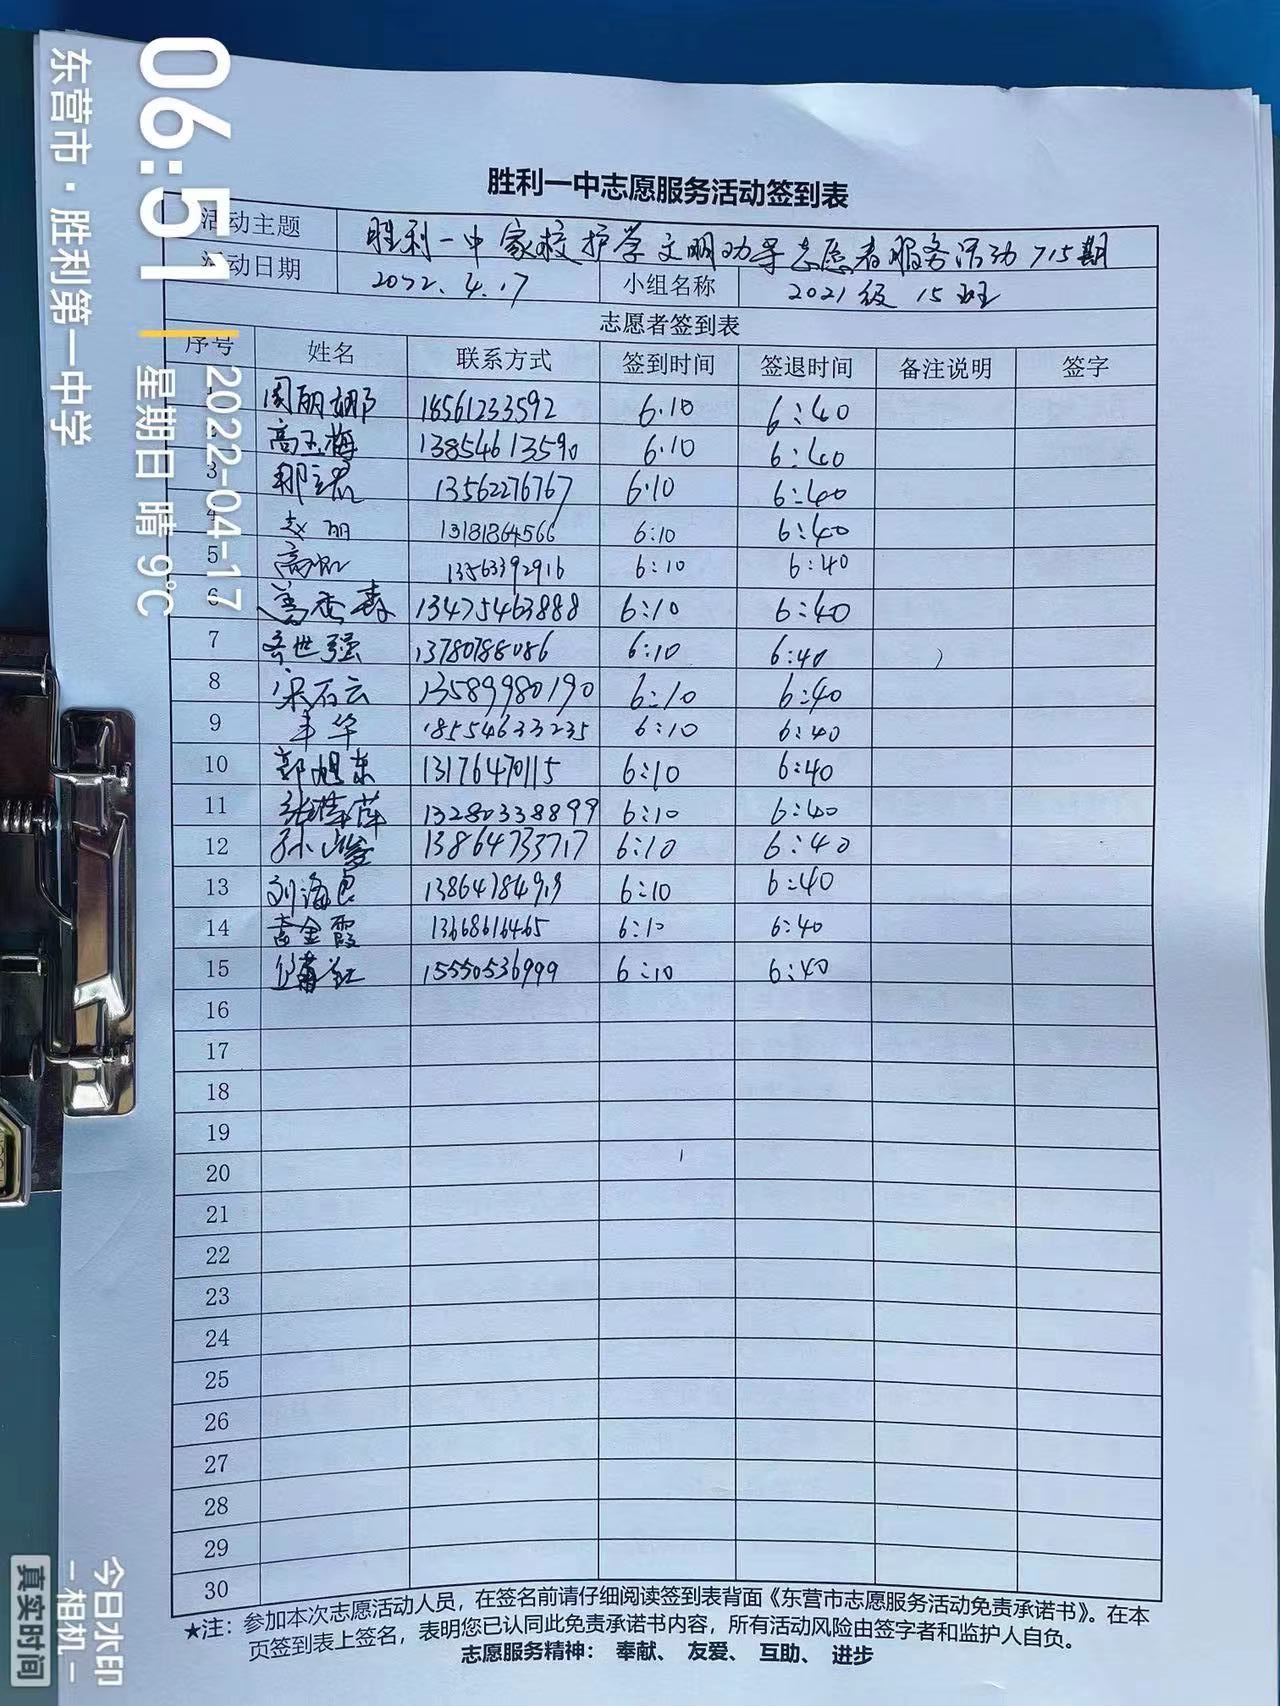 胜利一中志愿服务活动签到表
活动主题 胜利一中家校护学文明劝导志愿者服务活动715期
活动日期 2022.4.17 小组名称 2021级15班
志愿者签到表
序号 姓名 联系方式 签到时间 签退时间 备注说明 签字
周丽娜 18561233592 6.10 6:40
高玉梅 13854613590 6.10 6:40
3 13562276767 6.10 6:40
4 赵丽 13181864566 6:10 6:40
5 13563392916 6:10 6:40
6 13475463888 6:10 6:40
7 齐世强 13780788086 6:10 6:40
8 宋石云 13589980190 6:10 6:40
9 丰华 18554633235 6:10 6:40
10 郭旭东 13176470115 6:10 6:40
11 张萍萍 13280338899 6:10 6:40
12 孙 13864733717 6:10 6:40
13 刘海 6:10 6:40
14 袁金霞 13668616465 6:10 6:40
15 15550536999 6:10 6:40
16
17
18
19
20
21
22
23
24
25
26
27
28
29
30
★注：参加本次志愿活动人员，在签名前请仔细阅读签到表背面《东营市志愿服务活动免责承诺书》。在本
页签到表上签名，表明您已认同此免责承诺书内容，所有活动风险由签字者和监护人自负。
志愿服务精神： 奉献、 友爱、 互助、 进步
06:51
2022-04-17
星期日 晴 9℃
东营市·胜利第一中学
今日水印
-相机-
真实时间